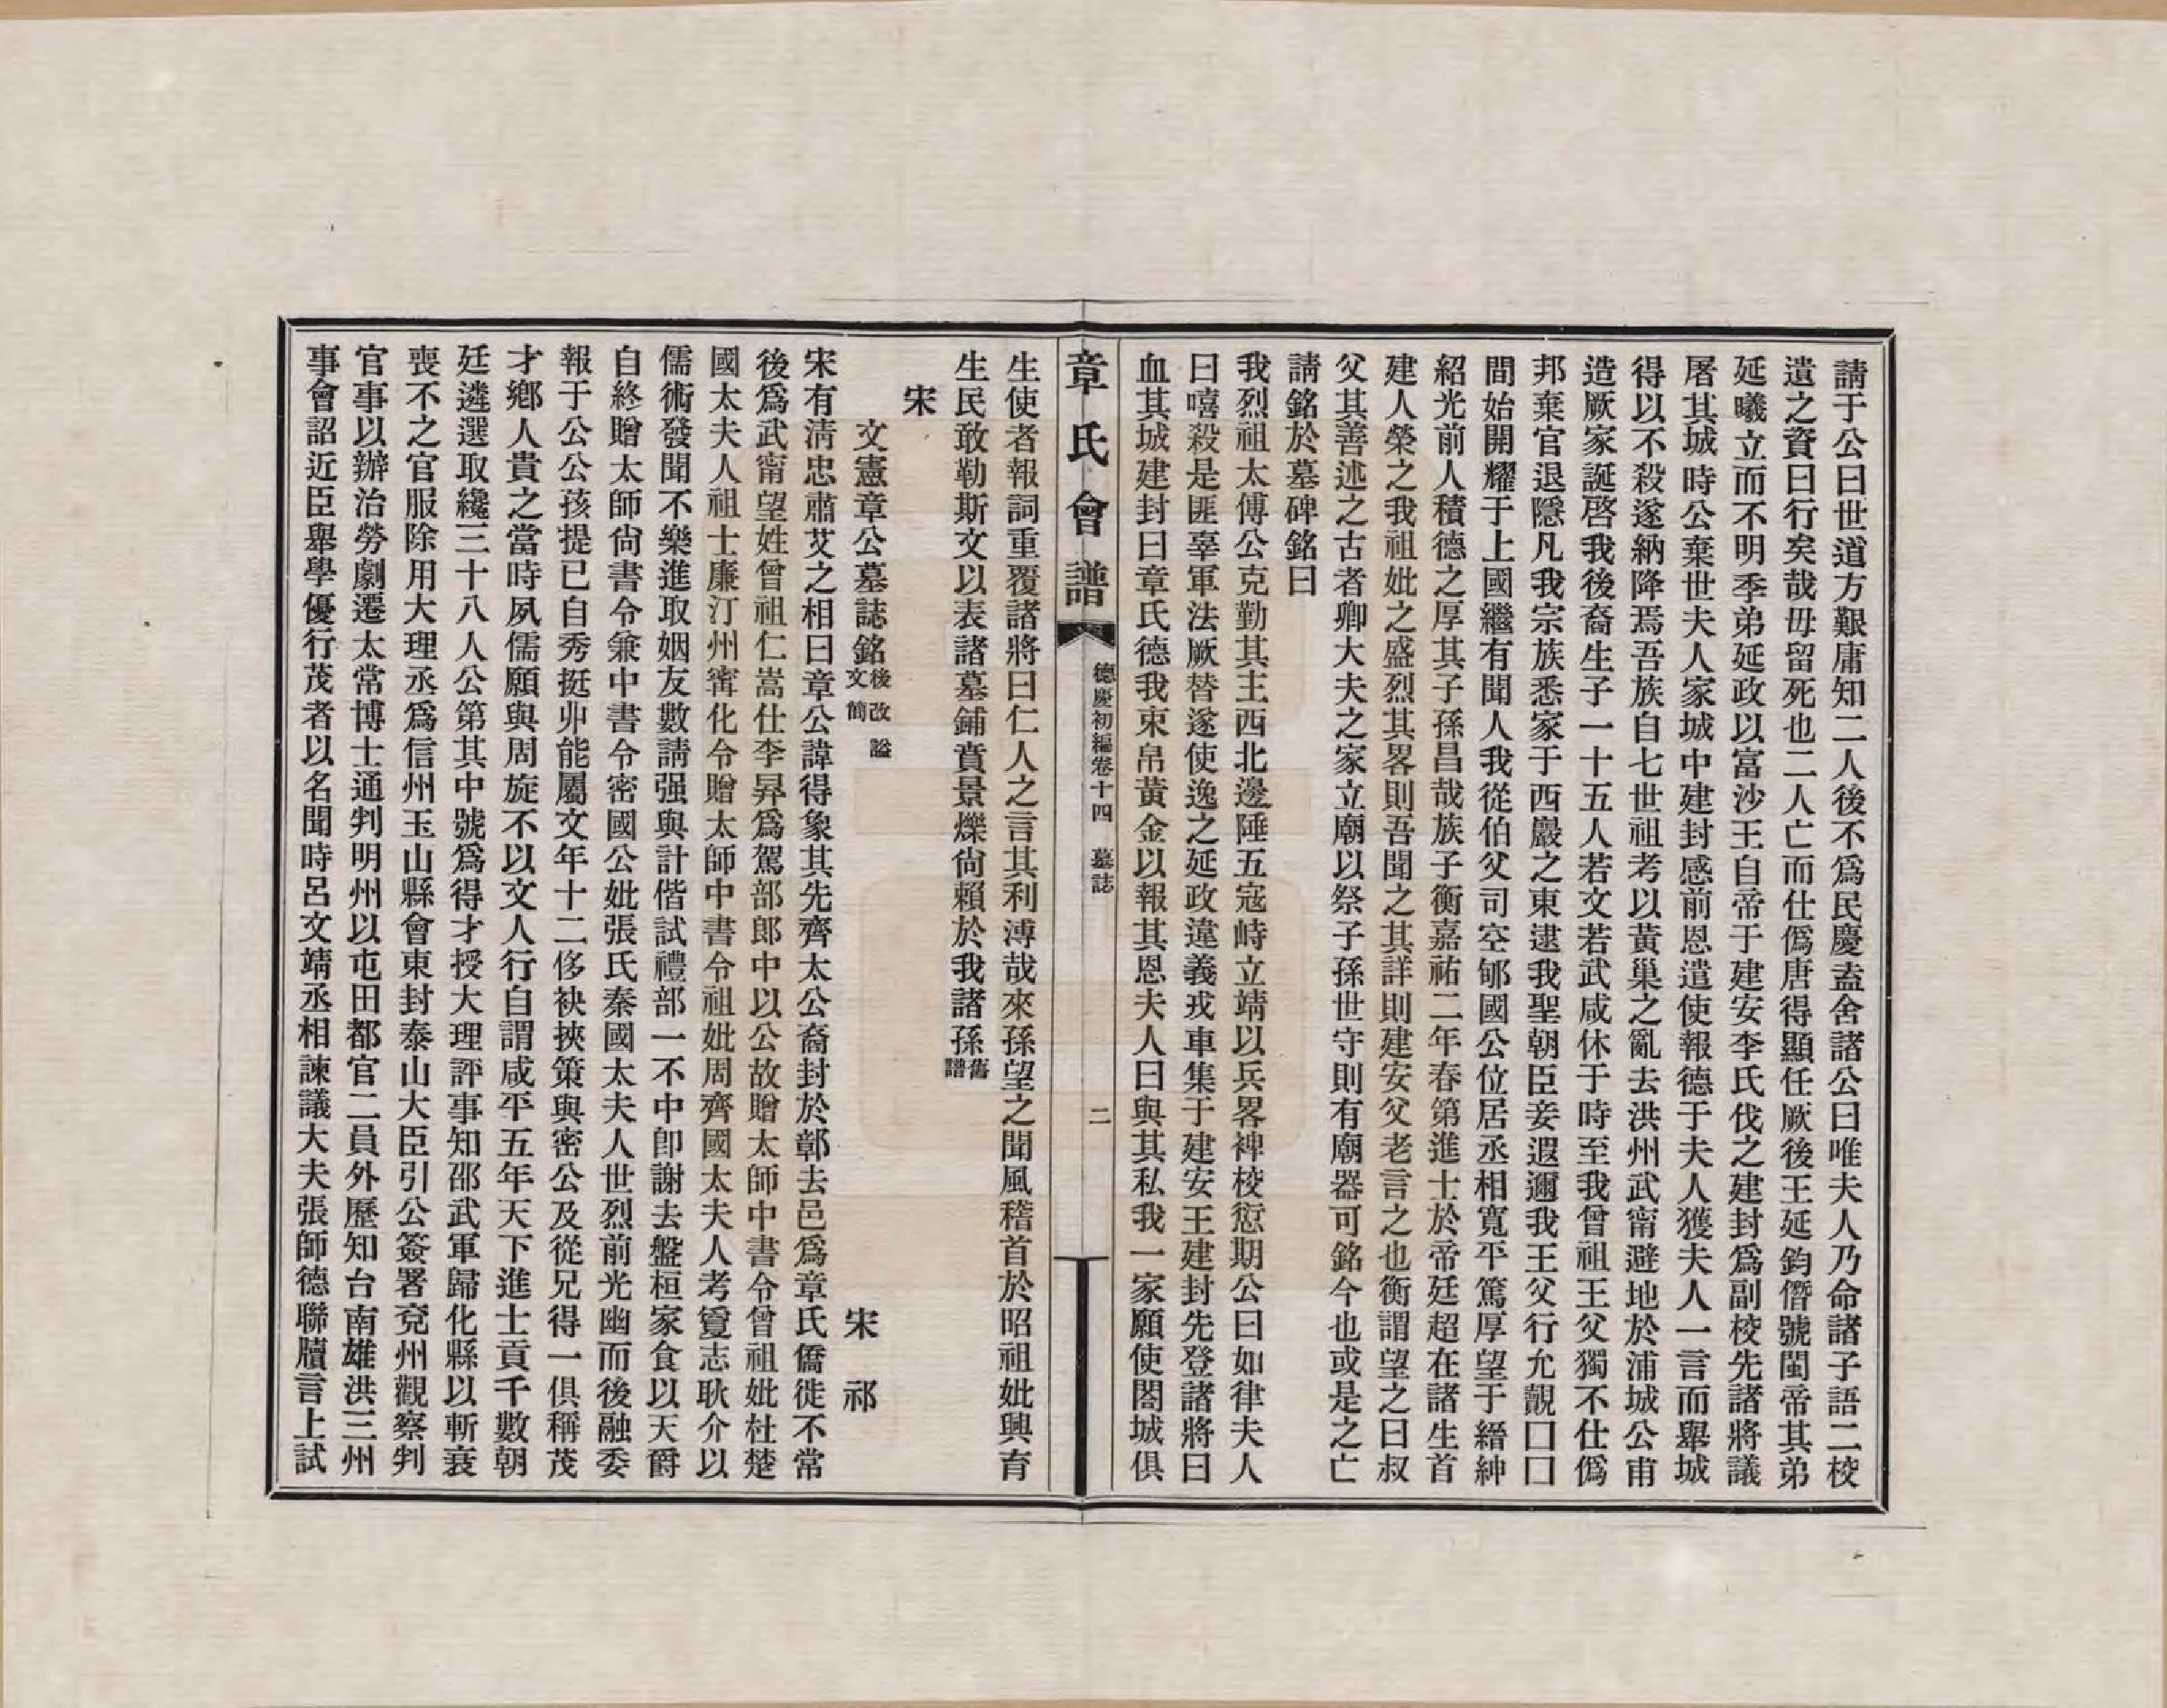 請于公曰世道方艱庸知二人後不爲民慶盍舍諸公曰唯夫人乃命諸子語二校
遺之資曰行矣哉毋留死也二人亡而仕僞唐得顯任厥後王延鈞僭號閩帝其弟
延曦立而不明季弟延政以富沙王自帝于建安李氏伐之建封爲副校先諸將議
屠其城時公棄世夫人家城中建封感前恩遣使報德于夫人獲夫人一言而舉城
得以不殺遂納降焉吾族自七世祖考以黃巢之亂去洪州武甯避地於浦城公甫
造厥家誕啓我後裔生子一十五人若文若武咸休于時至我曾祖王父獨不仕僞
邦棄官退隱凡我宗族悉家于西巖之東逮我聖朝臣妾遐邇我王父行允覿囗囗
間始開耀于上國繼有聞人我從伯父司空郇國公位居丞相寬平篤厚望于縉紳
紹光前人積德之厚其子孫昌哉族子衡嘉祐二年春第進士於帝廷超在諸生首
建人榮之我祖妣之盛烈其畧則吾聞之其詳則建安父老言之也衡謂望之曰叔
父其善述之古者卿大夫之家立廟以祭子孫世守則有廟器可銘今也或是之亡
請銘於墓碑銘曰
我烈祖太傅公克勤其主西北邊陲五寇峙立靖以兵畧裨校愆期公曰如律夫人
曰嘻殺是匪辜軍法厥替遂使逸之延政違義戎車集于建安王建封先登諸將曰
血其城建封曰章氏德我束帛黃金以報其恩夫人曰與其私我一家願使閤城俱
章氏會譜
德慶初編卷十四　墓誌
二
生使者報詞重覆諸將曰仁人之言其利溥哉來孫望之聞風稽首於昭祖妣興育
生民敢勒斯文以表諸墓鋪賁景爍尙賴於我諸孫舊譜
宋
文憲章公墓誌銘後改諡文簡　宋祁
宋有淸忠肅艾之相曰章公諱得象其先齊太公裔封於鄣去邑爲章氏僑徙不常
後爲武甯望姓曾祖仁嵩仕李昪爲駕部郎中以公故贈太師中書令曾祖妣杜楚
國太夫人祖士廉汀州甯化令贈太師中書令祖妣周齊國太夫人考奐志耿介以
儒術發聞不樂進取姻友數請强與計偕試禮部一不中卽謝去盤桓家食以天爵
自終贈太師尙書令兼中書令密國公妣張氏秦國太夫人世烈前光幽而後融委
報于公公孩提已自秀挺丱能屬文年十二侈袂挾策與密公及從兄得一俱稱茂
才鄉人貴之當時夙儒願與周旋不以文人行自謂咸平五年天下進士貢千數朝
廷遴選取纔三十八人公第其中號爲得才授大理評事知邵武軍歸化縣以斬衰
喪不之官服除用大理丞爲信州玉山縣會東封泰山大臣引公簽署兗州觀察判
官事以辦治勞劇遷太常博士通判明州以屯田都官二員外歷知台南雄洪三州
事會詔近臣舉學優行茂者以名聞時呂文靖丞相諫議大夫張師德聯牘言上試